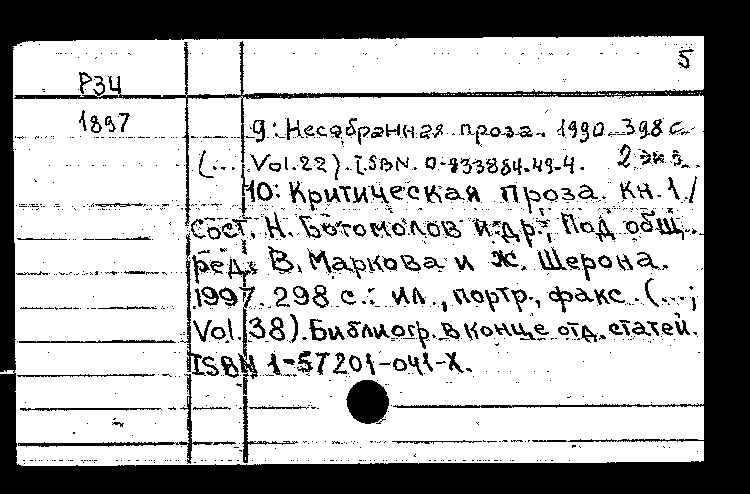 5
Р34
1897
9: Несобранная проза. 1990. 398 с.
(... Vol. 22). ISBN. 0-933884-49-4. 2 экз.
10: Критическая проза. Кн. 1 /
Сост. Н. Богомолов и др.; Под общ.
ред. В. Маркова и Ж. Шерона.
1997. 298 с.: ил., портр., факс. (...;
Vol. 38). Библиогр. в конце отд. статей.
ISBN 1-57201-041-X.